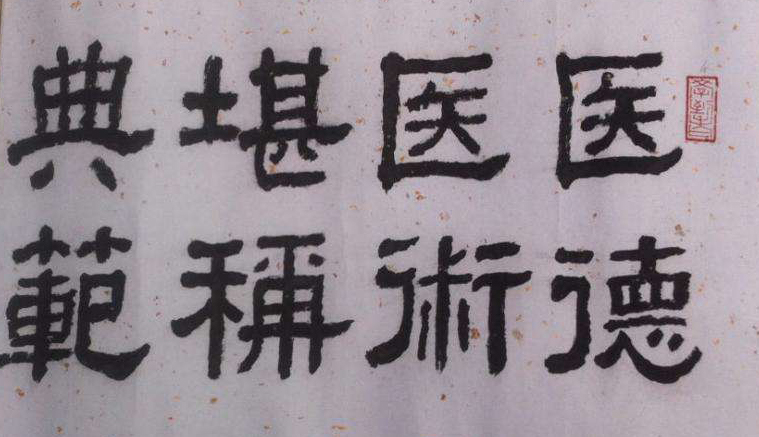 医德
医術
堪稱
典範